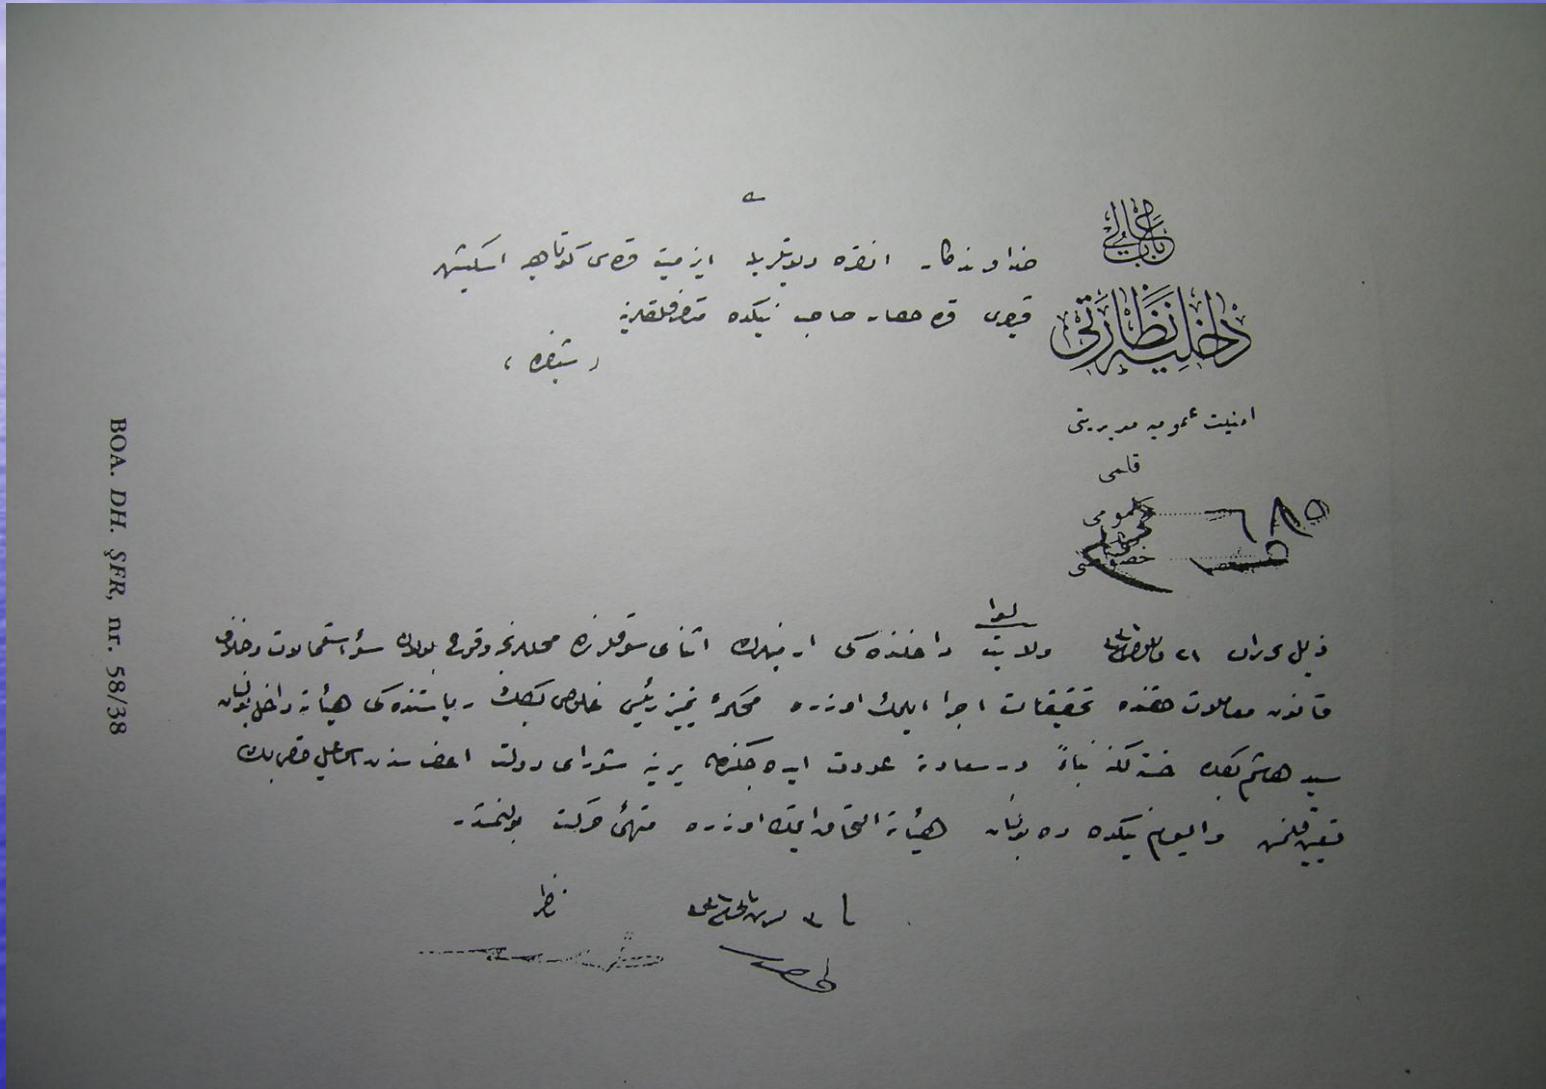 باب عالی
داخلیه نظارتی
امنیت عمومیه مدیریتی
قلمی
عمومی
خصوصی
خداوندكار انقره ولایتلریله ازمیت قره‌سی كوتاهیه اسكیشهر
قیصری قره حصار صاحب نیكده متصرفلقلرینه
شیفره
لوا
ولایت داخلنده‌كی ارمنیلرك اثنای سوقلرنده محللرنجه وقوعی سؤ استعمالات وخلاف
قانون معاملات حقنده تحقیقات اجرا ایلمك اوزره محكمۀ تمییز رئیسی خلوصی بك ریاستنده‌كی هیأته داخل بولنان
سید هاشم بك خسته‌لكنه بناءً درسعادته عودت ایده‌جكندن یرینه شورای دولت اعضاسندن اسماعیل حقی بك
تعیین قلنمش والیوم نیكده ده بولنان هیأته التحاق ایتمك اوزره متهیئ حركت بولنمشدر
ناظر
BOA. DH. ŞFR, nr. 58/38